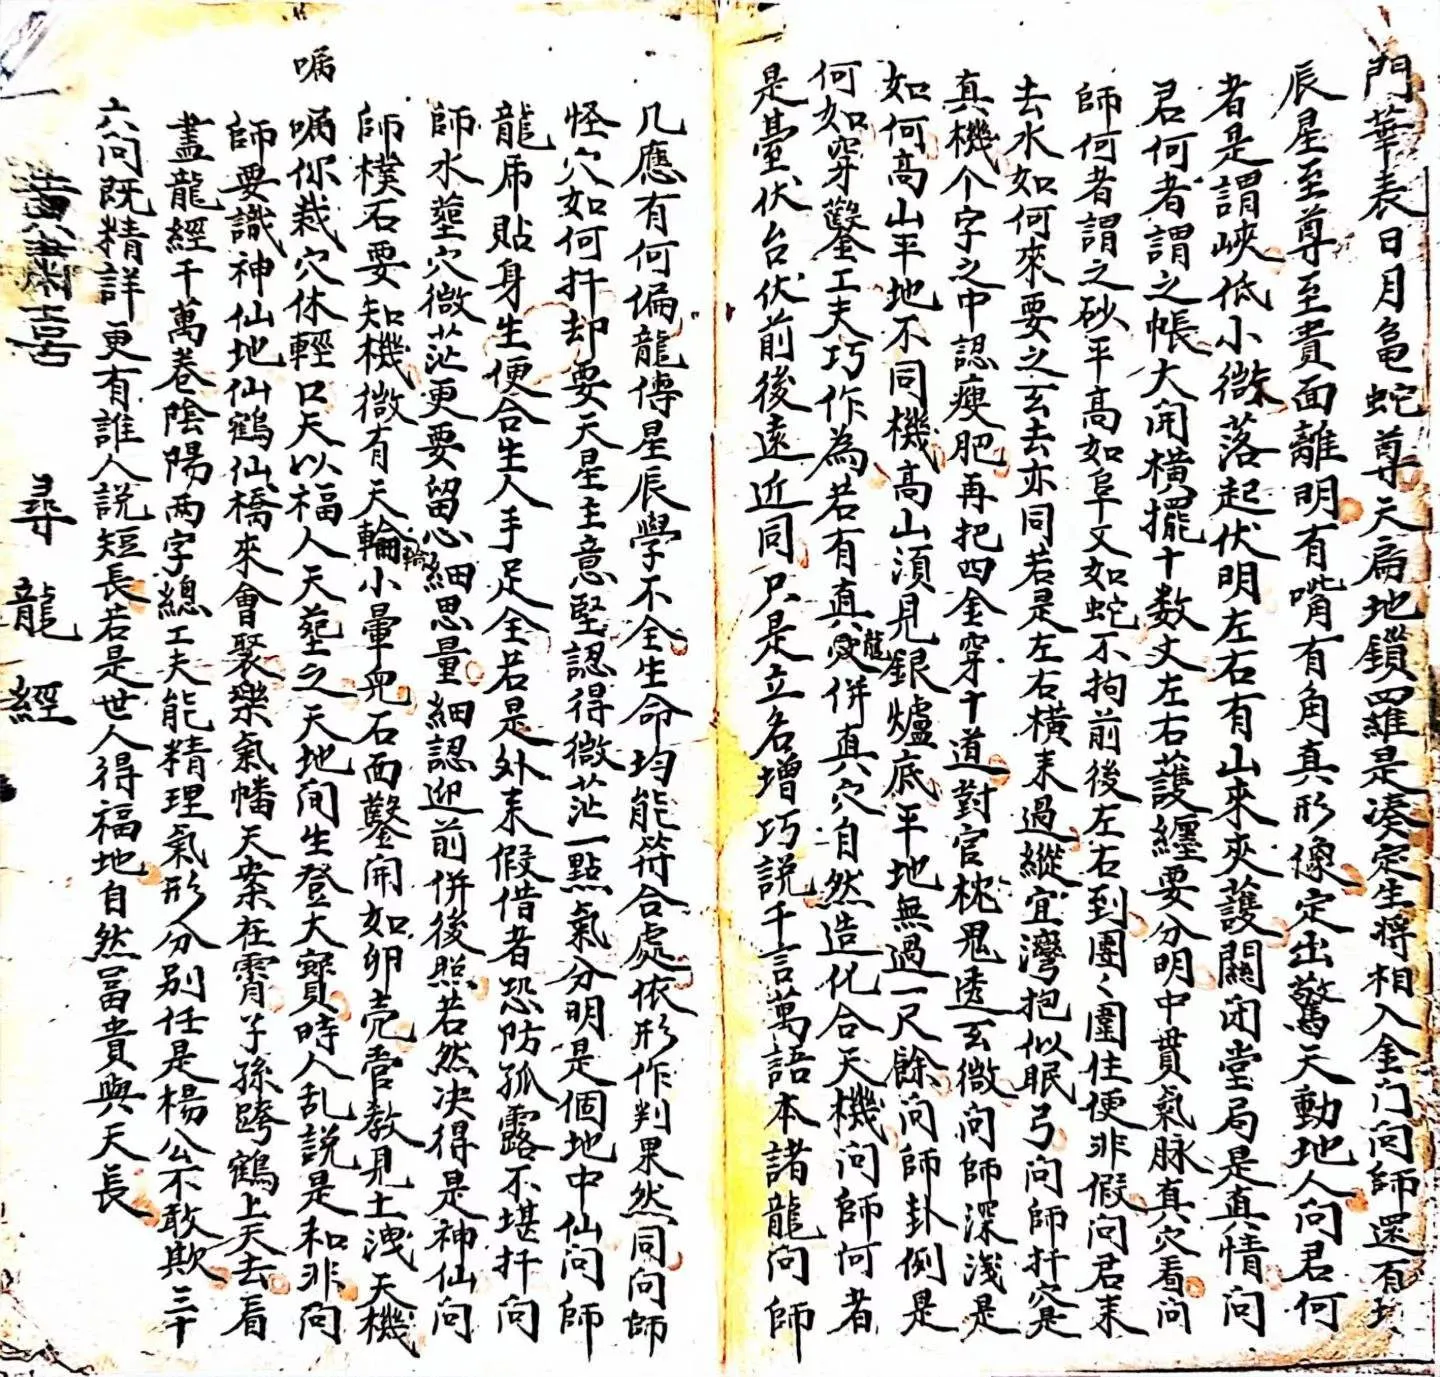 門華表日月龜蛇尊天扃地鎖四羅是湊定生將相入金门问師還有
辰星至尊至貴面離明有嘴有角真形像定出驚天動地人问君何
者是謂峽低小微微落起伏明左右有山來夾護關闭堂局是真情问
君何者謂之帳大開橫擺十数丈左右護纏要分明中貫氣脉真穴看问
師何者謂之砂平高如阜又如蛇不拘前後左右到團〻圍住便非假问君来
去水如何來要之玄去亦同若是左右橫来過縱宜灣抱似眠弓问師扦穴是
真機个字之中認瘦肥再把四金穿十道對官枕鬼透玄微问師深淺是
如何高山平地不同機高山須見銀爐底平地無過一尺餘问師卦例是
何如穿鑿工夫巧作為若有真龍併真穴自然造化合天機问師何者
是臺伏台伏前後遠近同只是立名增巧説千言萬語本諸龍问師
几應有何偏龍傳星辰學不全生命均能符合處依形作判果然同问師
怪穴如何扦却要天星主意堅認得微茫一點氣分明是個地中仙问師
龍虎貼身生便合生人手足全若是外来假借者恐防孤露不堪扦问
師水塟穴微茫更要留心細思量細認迎前併後照若然决得是神仙问
師樸石要知機微有天輪小暈兜石面鑿開如卵壳當教見土洩天機
囑
囑你栽穴休輕口天以福人天塟之天地间生登大寶時人乱説是和非问
師要識神仙地仙鶴仙橋來會聚樂氣幡天案在霄子孫跨鶴上天去看
盡龍經千萬卷陰陽两字總工夫能精理氣形分别任是楊公不敢欺三十
六问既精詳更有誰人説短長若是世人得福地自然富貴與天長
黃肅喜　尋龍經